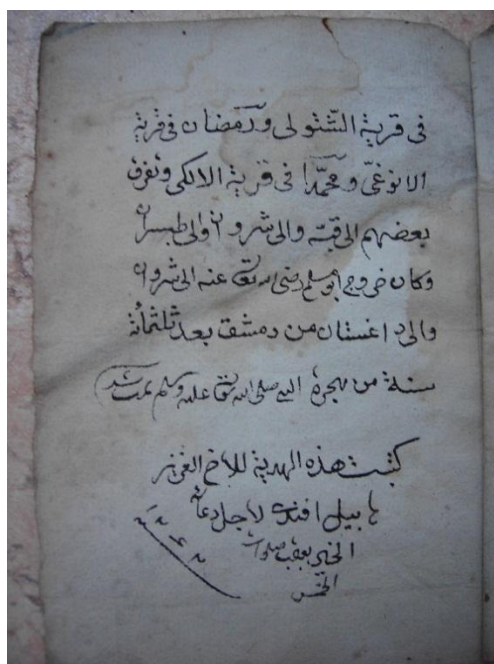 فى قرية الشنولى ورمضان فى قرية
الانوغىّ ومحمّدا فى قرية الالكى وتفرق
بعضهم الى قبّه والى شروان والى طبسران
وكان خروج ابو مسلم رضى الله تعالى عنه الى شروان
والى داغستان من دمشق بعد ثلثمائة
سنة من هجرة النبى صلى الله تعالى عليه وسلم تمت
كتبت هذه الهدية للاخ العزيز
هابيل افندى لاجل دعائه
الخير بعقب صلوات
الخمس
١٢٦٢